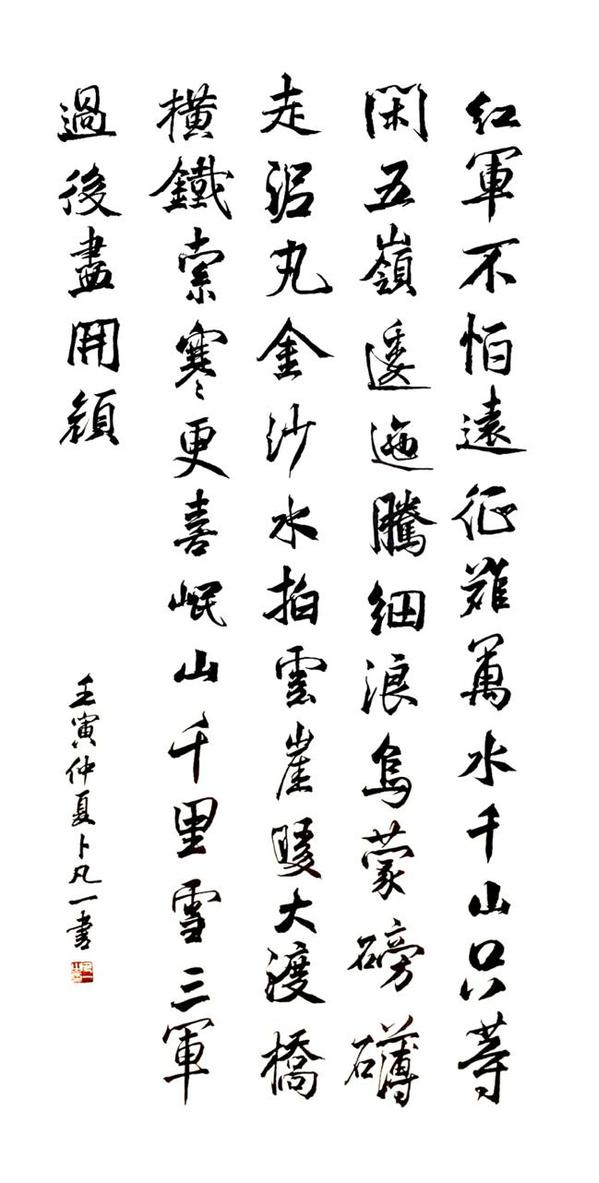 紅軍不怕遠征難萬水千山只等
閑五嶺逶迤騰細浪烏蒙磅礴
走泥丸金沙水拍雲崖暖大渡橋
橫鐵索寒更喜岷山千里雪三軍
過後盡開顏
壬寅仲夏卜凡一書